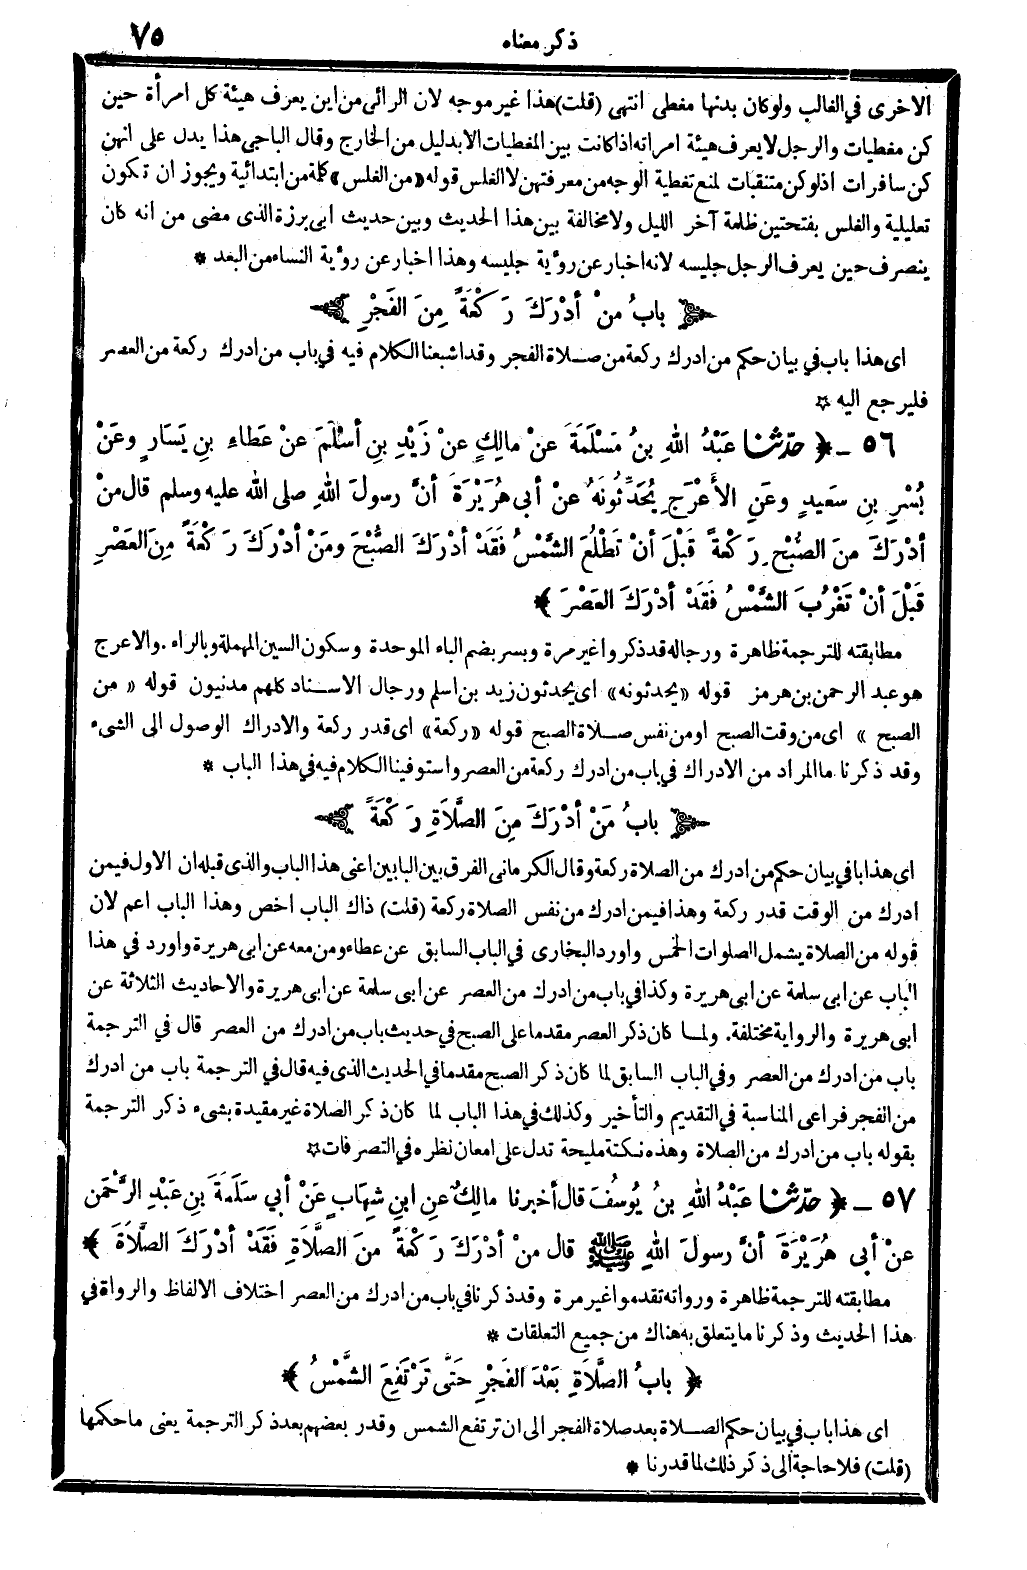 ذكر معناه
٧٥
الاخرى في الغالب ولو كان بدنها مغطى انتهى (قلت) هذا غير موجه لان الرائى من اين يعرف هيئة كل امرأة حين
كن مغطيات والرجل لا يعرف هيئة امراته اذا كانت بين المغطيات الا بدليل من الخارج وقال الباجي هذا يدل على انهن
كن سافرات اذ لو كن متنقبات لمنع تغطية الوجه من معرفتهن لا الغلس قوله «من الغلس» كلمة من ابتدائية ويجوز ان تكون
تعليلية والغلس بفتحتين ظلمة آخر الليل ولا مخالفة بين هذا الحديث وبين حديث ابى برزة الذى مضى من انه كان
ينصرف حين يعرف الرجل جليسه لانه اخبار عن رؤية جليسه وهذا اخبار عن رؤية النساء من البعد *
بابُ منْ أدْرَكَ رَكْعَةً مِنَ الفَجْرِ
اى هذا باب في بيان حكم من ادرك ركعة من صلاة الفجر وقد اشبعنا الكلام فيه في باب من ادرك ركعة من العصر
فليرجع اليه ☆
٥٦ ـ ﴿ حدّثنا عَبْدُ اللهِ بنُ مَسْلَمَةَ عنْ مالِكٍ عنْ زَيْدِ بنِ أسْلَمَ عنْ عَطاءِ بنِ يَسَارٍ وعَنْ
بُسْرِ بنِ سَعيدٍ وعَنِ الأَعْرَجِ يُحَدِّثُونَهُ عنْ أبى هُرَيْرَةَ أنَّ رسولَ اللهِ صلى الله عليه وسلم قال منْ
أدْرَكَ منَ الصُّبْحِ رَكْعَةً قَبْلَ أنْ تَطْلُعَ الشَّمْسُ فَقَدْ أدْرَكَ الصُّبْحَ ومَنْ أدْرَكَ رَكْعَةً مِنَ العَصْرِ
قَبْلَ أنْ تَغْرُبَ الشَّمْسُ فَقَدْ أدْرَكَ العَصْرَ ﴾
مطابقته للترجمة ظاهرة ورجاله قد ذكروا غير مرة وبسر بضم الباء الموحدة وسكون السين المهملة وبالراء . والاعرج
هو عبد الرحمن بن هرمز قوله «يحدثونه» اى يحدثون زيد بن اسلم ورجال الاسناد كلهم مدنيون قوله «من
الصبح» اى من وقت الصبح او من نفس صلاة الصبح قوله «ركعة» اى قدر ركعة والادراك الوصول الى الشىء
وقد ذكرنا ما المراد من الادراك في باب من ادرك ركعة من العصر واستوفينا الكلام فيه في هذا الباب *
بابُ مَنْ أدْرَكَ مِنَ الصَّلَاةِ رَكْعَةً
اى هذا با في بيان حكم من ادرك من الصلاة ركعة وقال الكرمانى الفرق بين البابين اعنى هذا الباب والذى قبله ان الاول فيمن
ادرك من الوقت قدر ركعة وهذا فيمن ادرك من نفس الصلاة ركعة (قلت) ذاك الباب اخص وهذا الباب اعم لان
قوله من الصلاة يشمل الصلوات الخمس واورد البخارى في الباب السابق عن عطاء ومن معه عن ابى هريرة واورد في هذا
الباب عن ابى سلمة عن ابى هريرة وكذا في باب من ادرك من العصر عن ابى سلمة عن ابى هريرة والاحاديث الثلاثة عن
ابى هريرة والرواية مختلفة. ولما كان ذكر العصر مقدما على الصبح في حديث باب من ادرك من العصر قال في الترجمة
باب من ادرك من العصر وفي الباب السابق لما كان ذكر الصبح مقدما في الحديث الذى فيه قال في الترجمة باب من ادرك
من الفجر فراعى المناسبة في التقديم والتأخير وكذلك في هذا الباب لما كان ذكر الصلاة غير مقيدة بشىء ذكر الترجمة
بقوله باب من ادرك من الصلاة وهذه نكتة مليحة تدل على امعان نظره في التصرفات☆
٥٧ ـ ﴿ حدّثنا عَبْدُ اللهِ بنُ يُوسُفَ قال أخبرنا مالِكٌ عنِ ابنِ شِهَابٍ عَنْ أبي سَلَمَةَ بنِ عَبْدِ الرَّحْمَنِ
عنْ أبى هُرَيْرَةَ أنَّ رسولَ اللهِ ﷺ قال منْ أدْرَكَ رَكْعَةً منَ الصَّلَاةِ فَقَدْ أدْرَكَ الصَّلَاةَ ﴾
مطابقته للترجمة ظاهرة ورواته تقدموا غير مرة وقد ذكرنا في باب من ادرك من العصر اختلاف الالفاظ والرواة في
هذا الحديث وذكرنا ما يتعلق به هناك من جميع التعلقات *
﴿ بابُ الصَّلَاةِ بَعْدَ الفَجْرِ حَتَّى تَرْتَفِعَ الشَّمْسُ ﴾
اى هذا باب في بيان حكم الصلاة بعد صلاة الفجر الى ان ترتفع الشمس وقدر بعضهم بعد ذكر الترجمة يعنى ما حكمها
(قلت) فلا حاجة الى ذكر ذلك لما قدرنا *